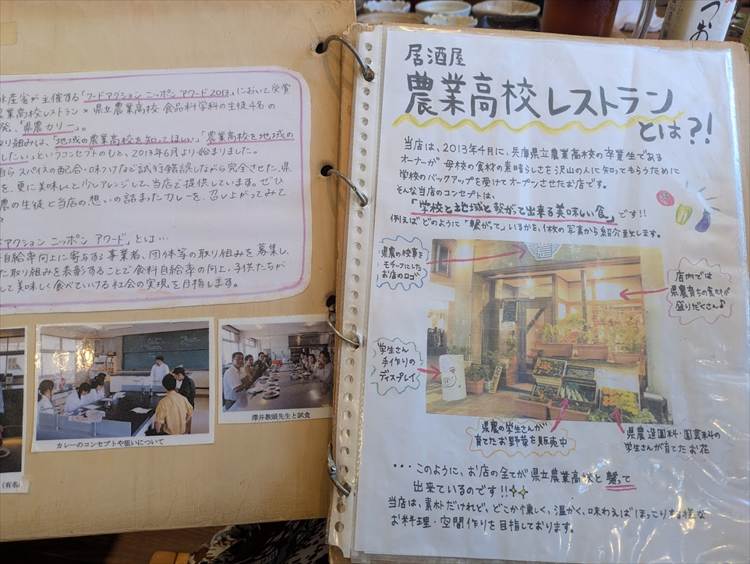 水産省が主催する「フードアクション ニッポン アワード2013」において受賞
農業高校レストラン × 県立農業高校 食品科学科の生徒4名の
「県農カリー」。
取り組みは、「地域の農業高校を知ってほしい」、「農業高校を地域の
したい」というコンセプトのもと、2013年6月より始まりました。
自らスパイスの配合・味つけなど試行錯誤しながら完全させた、県
を、更に美味しくアレンジして、当店で提供しています。ぜひ
農の生徒と当店の想いの詰まったカレーを、召し上がってみて
アクション ニッポン アワード」とは…
自給率向上に寄与する事業者、団体等の取り組みを募集し、
た取り組みを表彰することで食料自給率の向上、子供たちが
して美味しく食べていける社会の実現を目指します。
カレーのコンセプトや狙いについて
澤井教頭先生と試食
(有名
つお
居酒屋
農業高校レストラン
とは?!
当店は、2013年4月に、兵庫県立農業高校の卒業生である
オーナーが 母校の食材の素晴らしさを沢山の人に知ってもらうために
学校のバックアップを受けてオープンさせたお店です。
そんな当店のコンセプトは、
「学校と地域と繋がって出来る美味しい食」です!!
例えばどのように「繋がって」いるかを、1枚の写真から紹介致します。
県農の校章を
モチーフにした
お店のロゴ
店内では
県農育ちの食材が
盛りだくさん♪
学生さん
手作りの
ディスプレイ
県農の学生さんが
育てたお野菜を販売中
県農造園科・園芸科の
学生さんが育てたお花
・・・このように、お店の全てが県立農業高校と繋って
出来ているのです!!
当店は、素朴だけれど、どこか懐しく、温かく、味わえばほっこりする様な
お料理・空間作りを目指しております。